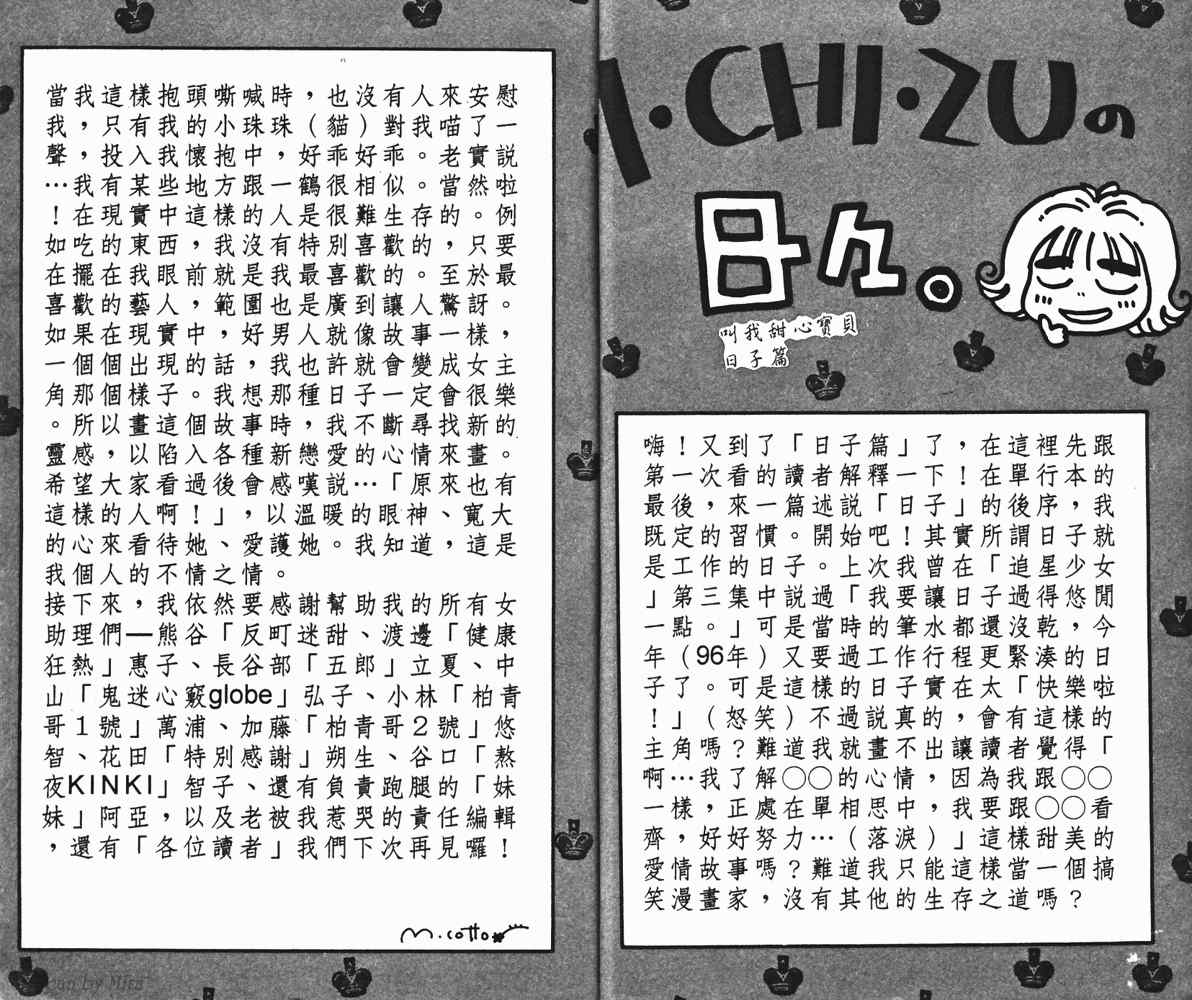 I·CHI·ZUの
日々。
叫我甜心寶貝
日子篇
嗨！又到了「日子篇」了，在這裡先跟
第一次看的讀者解釋一下！在單行本的
最後，來一篇述說「日子」的後序，我
既定的習慣。開始吧！其實所謂日子就
是工作的日子。上次我曾在「追星少女
」第三集中說過「我要讓日子過得悠閒
一點。」可是當時的筆水都還沒乾，今
年（96年）又要過工作行程更緊湊的日
子了。可是這樣的日子實在太「快樂啦
！」（怒笑）不過說真的，會有這樣的
主角嗎？難道我就畫不出讓讀者覺得「
啊…我了解○○的心情，因為我跟○○
一樣，正處在單相思中，我要跟○○看
齊，好好努力…（落淚）」這樣甜美的
愛情故事嗎？難道我只能這樣當一個搞
笑漫畫家，沒有其他的生存之道嗎？
當我這樣抱頭嘶喊時，也沒有人來安慰
我，只有我的小珠珠（貓）對我喵了一
聲，投入我懷抱中，好乖好乖。老實說
…我有某些地方跟一鶴很相似。當然啦
！在現實中這樣的人是很難生存的。例
如吃的東西，我沒有特別喜歡的，只要
在擺在我眼前就是我最喜歡的。至於最
喜歡的藝人，範圍也是廣到讓人驚訝。
如果在現實中，好男人就像故事一樣，
一個個出現的話，我也許就會變成女主
角那個樣子。我想那種日子一定會很樂
。所以畫這個故事時，我不斷尋找新的
靈感，以陷入各種新戀愛的心情來畫。
希望大家看過後會感嘆說…「原來也有
這樣的人啊！」，以溫暖的眼神、寬大
的心來看待她、愛護她。我知道，這是
我個人的不情之情。
接下來，我依然要感謝幫助我的所有女
助理們—熊谷「反町迷甜、渡邊「健康
狂熱」惠子、長谷部「五郎」立夏、中
山「鬼迷心竅globe」弘子、小林「柏青
哥１號」萬浦、加藤「柏青哥２號」悠
智、花田「特別感謝」朔生、谷口「熬
夜KINKI」智子、還有負責跑腿的「妹
妹」阿亞，以及老被我惹哭的責任編輯
，還有「各位讀者」我們下次再見囉！
M.cotto